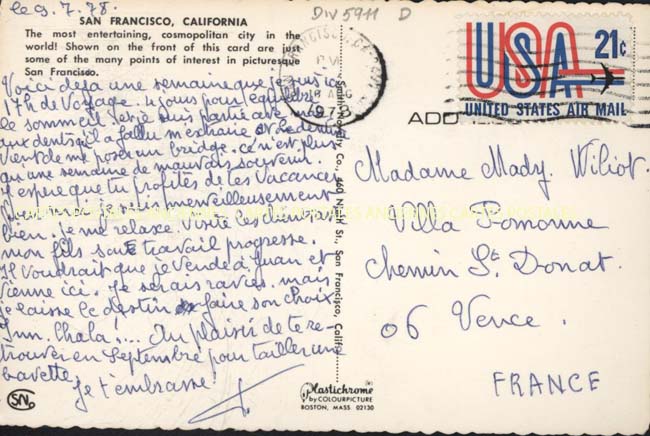 le 9.7.78.
Div 5911 D
SAN FRANCISCO, CALIFORNIA
The most entertaining, cosmopolitan city in the
world! Shown on the front of this card are just
some of the many points of interest in picturesque
San Francisco.
Voici déja une semaine que je suis ici
17h de Voyage. 4 jours pour
le sommeil
aux dents il a fallu
Vient de me poser un bridge. ce n'est plus
qu'une semaine de mauvais souvenir.
J'espère que tu profites de tes Vacances
merveilleusement
bien. je me relaxe. Visite les
mon fils travail progresse.
Il Voudrait que je Vende à Juan et
Vienne ici. Je serais ravie. mais
je laisse le destin faire son choix
Inn. Chala!.... Au plaisir de te re-
trouver en Septembre pour tailler une
bavette.
Je t'embrasse!
SN
Smith Novelty Co., 460 Ninth St., San Francisco, Calif.
Plastichrome
by COLOURPICTURE
BOSTON, MASS 02130
USA 21c
UNITED STATES AIR MAIL
ADD
Madame Mady. Wiliot.
Villa Pomonne
Chemin St Donat.
06 Vence.
FRANCE